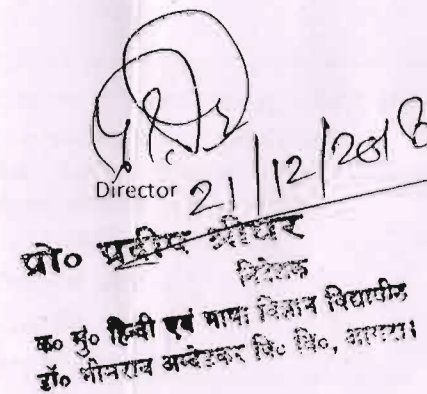 Director 21/12/2018
प्रो० प्रदीप श्रीधर
निदेशक
क० मुं० हिन्दी एवं भाषा विज्ञान विद्यापीठ
डॉ० भीमराव अम्बेडकर वि० वि०, आगरा।